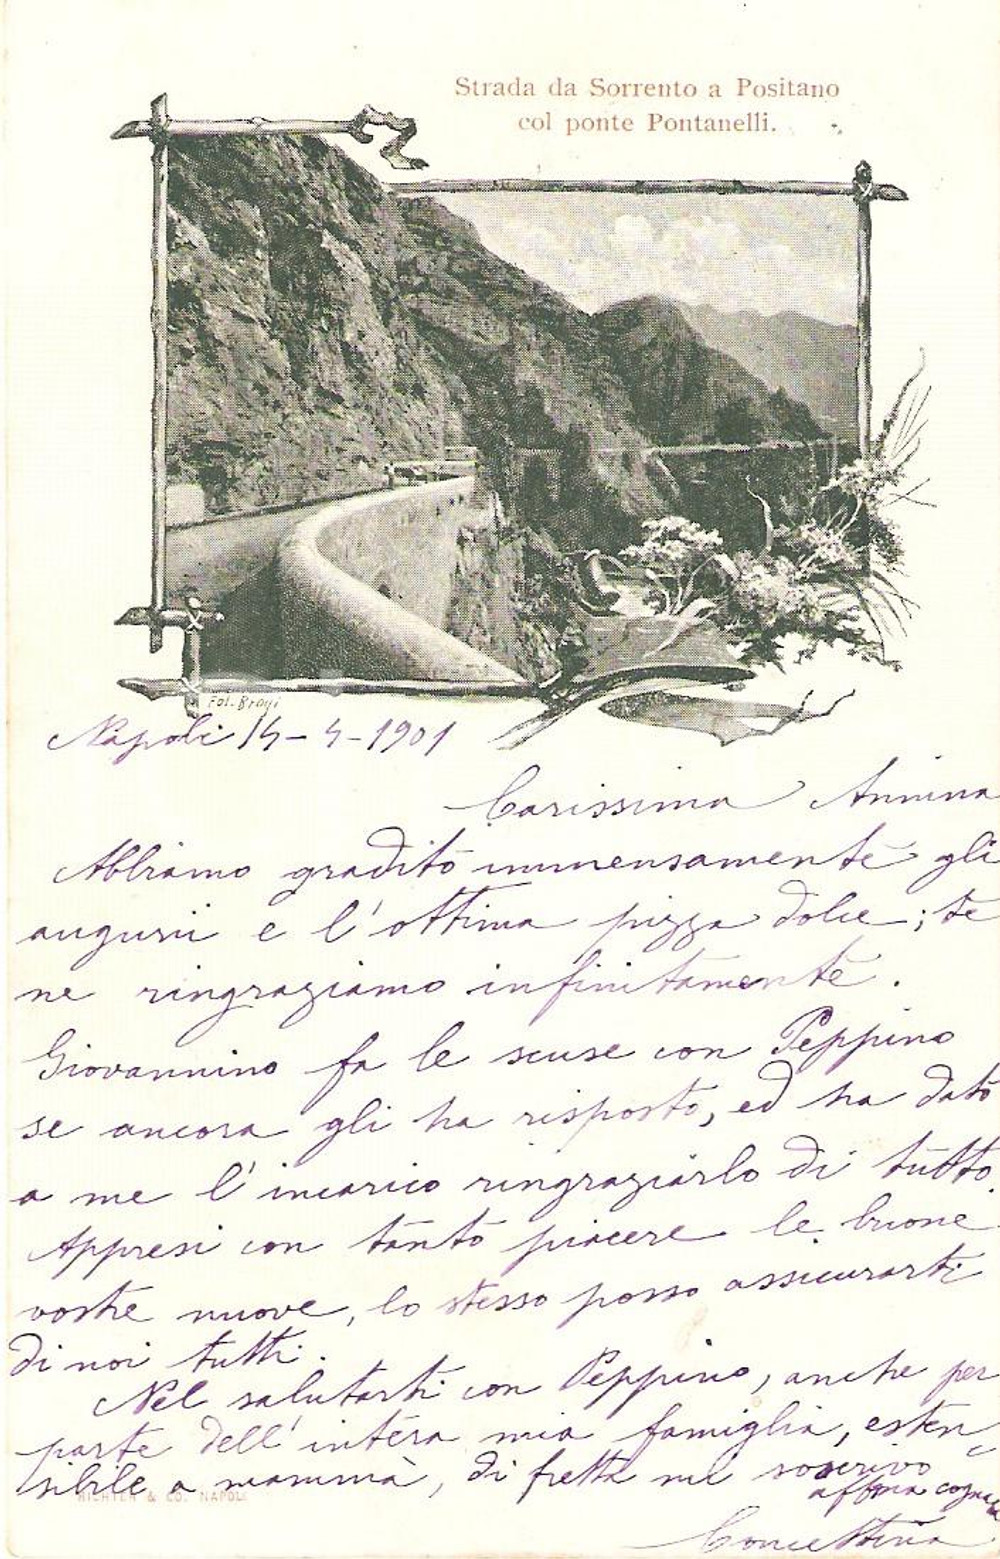 Strada da Sorrento a Positano
col ponte Pontanelli.
Fot. Brogi
Napoli 14-4-1901
Carissima Annina
Abbiamo gradito immensamente gli
augurii e l'ottima pizza dolce; te
ne ringraziamo infinitamente.
Giovannino fa le scuse con Peppino
se ancora gli ha risposto, ed ha dato
a me l'incarico ringraziarlo di tutto.
Appresi con tanto piacere le buone
vostre nuove, lo stesso posso assicurarti
di noi tutti.
Nel salutarti con Peppino, anche per
parte dell'intera mia famiglia, esten-
sibile a mammà, di fretta mi soscrivo
RICHTER & CO. NAPOLI
affma cognata
Concettina